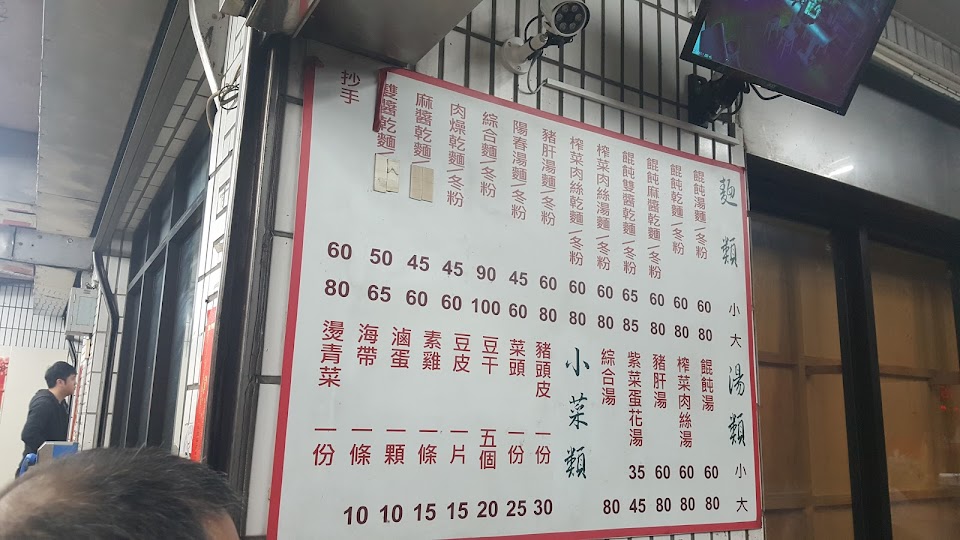 麵類 小 大
餛飩湯麵/冬粉 60 80
餛飩乾麵/冬粉 60 80
餛飩麻醬乾麵/冬粉 60 80
餛飩雙醬乾麵/冬粉 65 85
榨菜肉絲湯麵/冬粉 60 80
榨菜肉絲乾麵/冬粉 60 80
豬肝湯麵/冬粉 60 80
陽春湯麵/冬粉 45 60
綜合麵/冬粉 90 100
肉燥乾麵/冬粉 45 60
麻醬乾麵/ 45 60
雙醬乾麵/ 50 65
抄手 60 80
湯類 小 大
餛飩湯 60 80
榨菜肉絲湯 60 80
豬肝湯 60 80
紫菜蛋花湯 35 45
綜合湯 80
小菜類
豬頭皮 一份 30
菜頭 一份 25
豆干 五個 20
豆皮 一片 15
素雞 一條 15
滷蛋 一顆 10
海帶 一條 10
燙青菜 一份